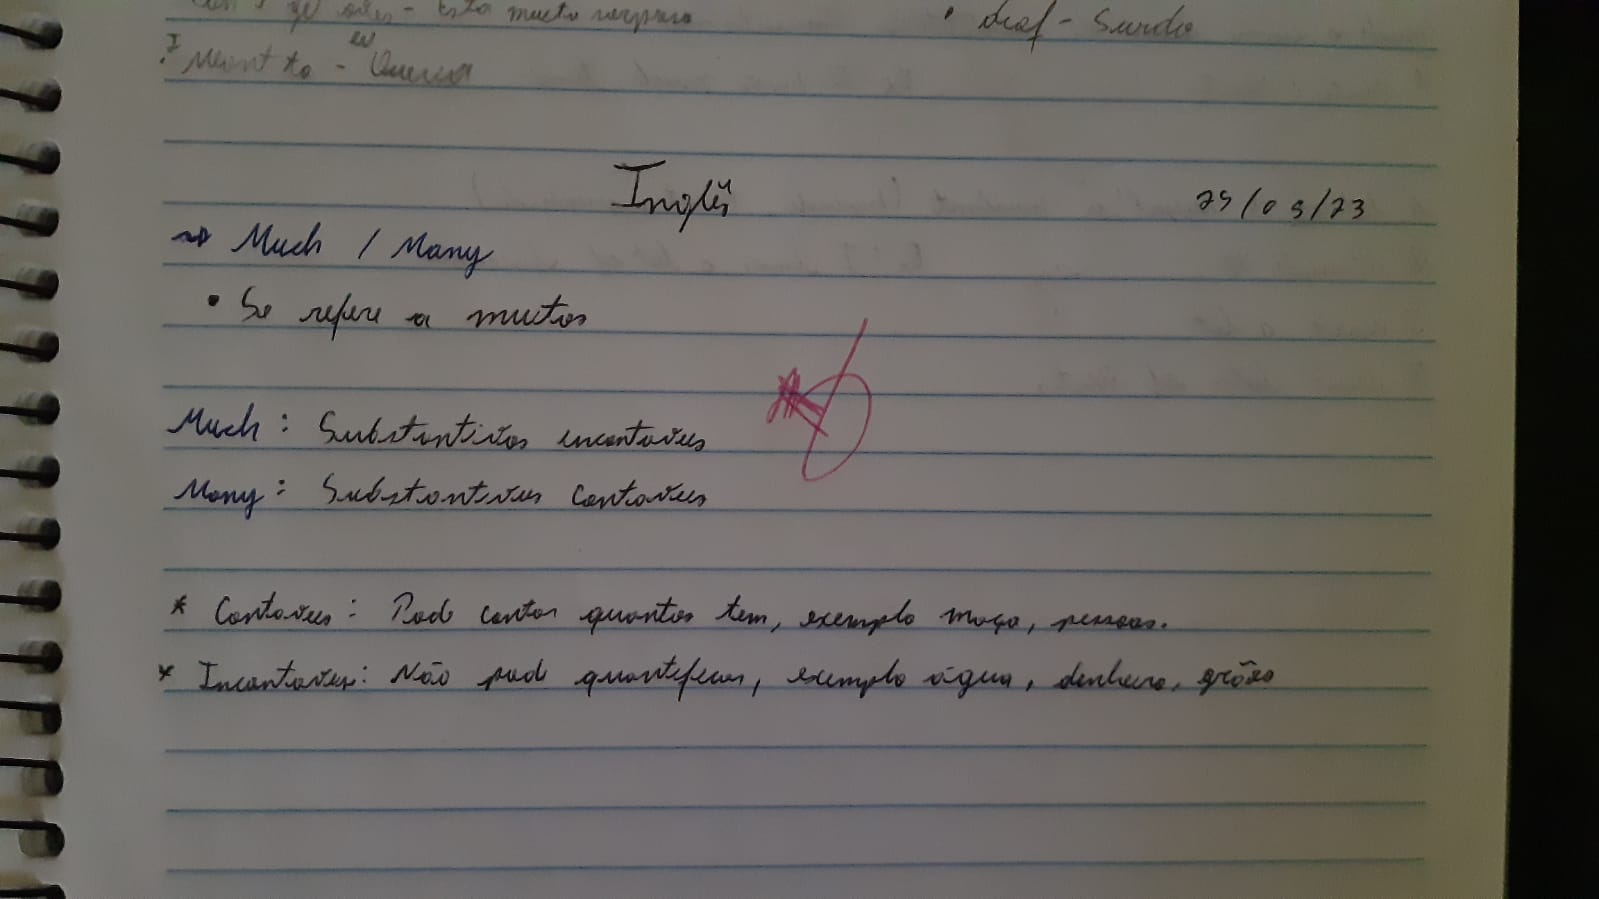 Esta muito surpreso
• deaf - Surdo
I
• Want to - eu Queria
Inglês 25/05/23
~> Much / Many
• Se refere a muitos
Much: Substantivos incontaveis
Many: Substantivos Contaveis
* Contaveis: Pode contar quantos tem, exemplo maça, pessoas.
* Incontaveis: Não pode quantificar, exemplo água, dinheiro, grãos